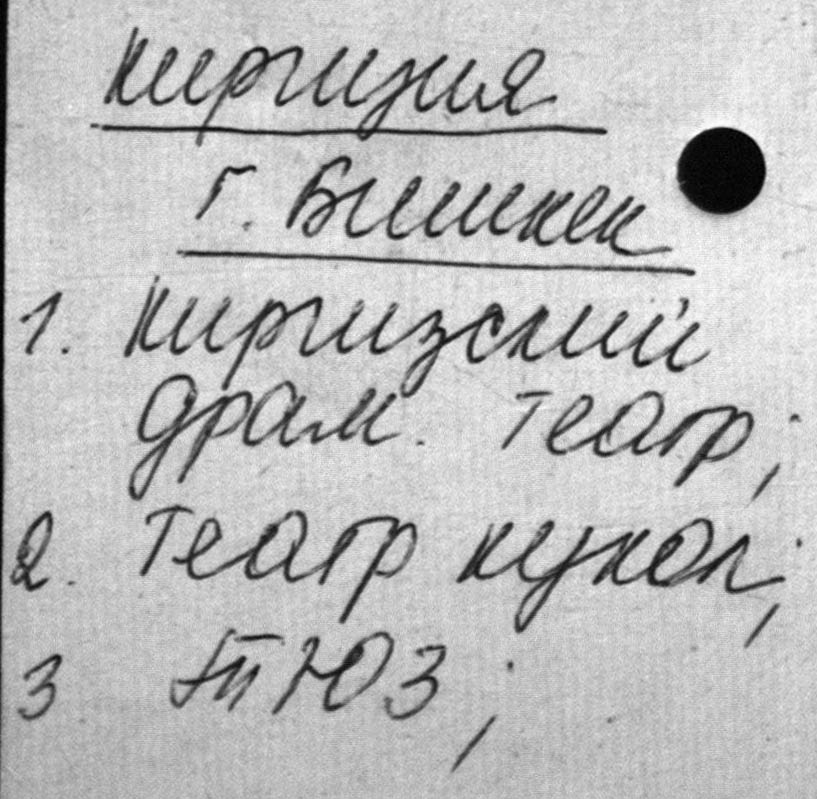 Киргизия
г. Бишкек
1. Киргизский
драм. театр;
2. Театр кукол;
3 ТЮЗ;